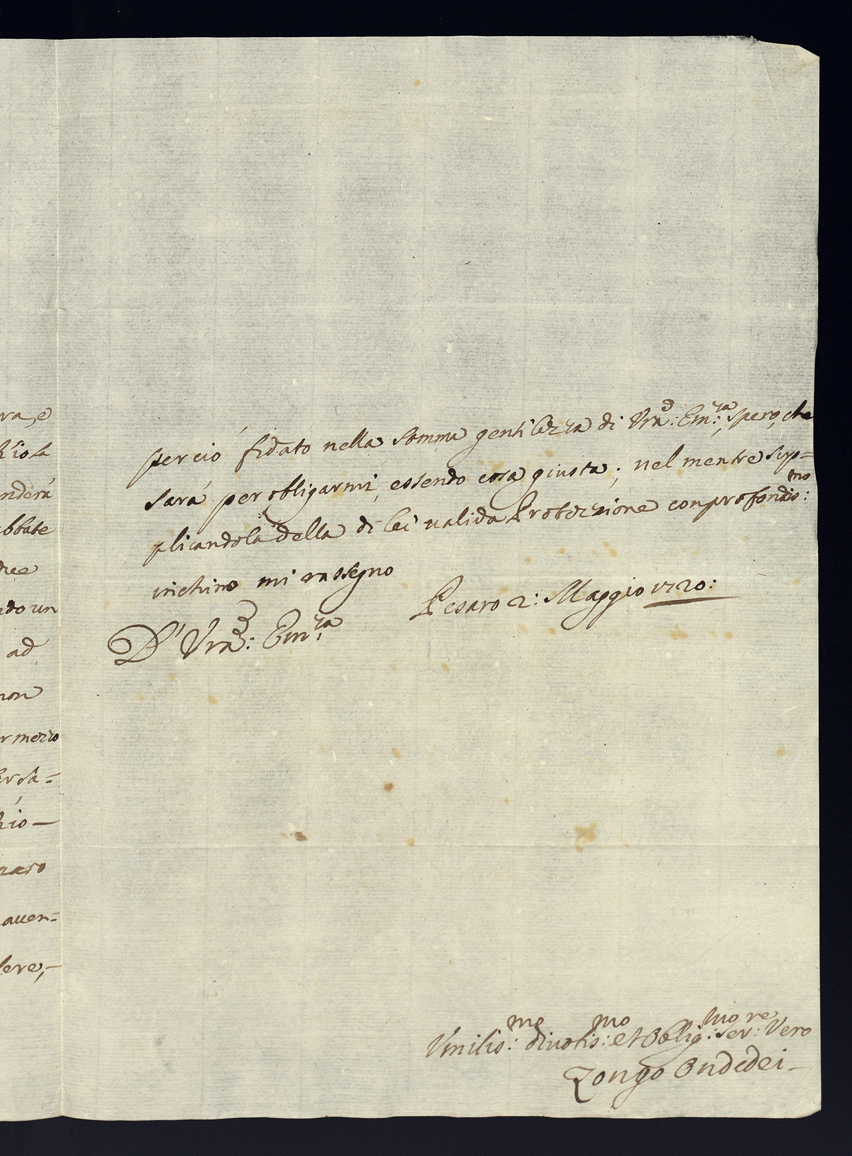 ra, e
hiola
nderà
bbate
dree
ndo un
ad
non
r mezzo
ersa=
hio—
razo
auen=
lere,—
perciò fidato nella somma gentilezza di Vra: Em:za, spero, che
sarà per obligarmi, essendo cosa giusta; nel mentre sup=
plicandola della di lei valida Protezzione con profondis:mo
inchino mi rassegno
D' Vra: Em:za
Pesaro 2: Maggio 1720:
Vmilis:mo diuotis:mo et Oblig:mo Ser:re Vero
Zongo Ondedei